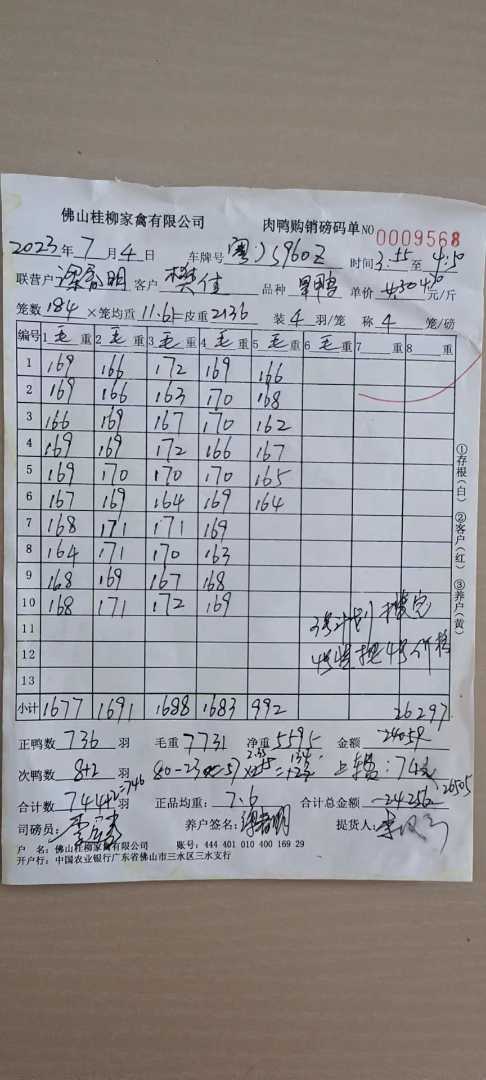 佛山桂柳家禽有限公司 肉鸭购销磅码单 NO 0009568
2023年7月4日 车牌号 粤J5960Z 时间3:55至4:50
联营户 客户 樊佳 品种 单价 元/斤
笼数184×笼均重11.61=皮重2136 装4羽/笼 称4笼/磅
编号 1毛重 2毛重 3毛重 4毛重 5毛重 6毛重 7重 8重
1 169 166 172 169 166
2 169 166 163 170 168
3 166 169 167 170 162
4 169 169 172 166 167
5 169 170 170 170 165
6 167 169 164 169 164
7 168 171 171 169
8 164 171 170 163
9 168 169 167 168
10 168 171 172 169
11 3号计划
12 4号价格
13
小计 1677 1691 1688 1683 992 26297
正鸭数736羽 毛重7731 净重5595 金额 24059
次鸭数8+2羽 80-23 上车费:74元
合计数744+2=746羽 正品均重:7.6 合计总金额 24256 26505
司磅员: 养户签名: 提货人:
户 名:佛山桂柳家禽有限公司 账号:444 401 010 400 169 29
开户行:中国农业银行广东省佛山市三水区三水支行
①存根(白) ②客户(红) ③养户(黄)